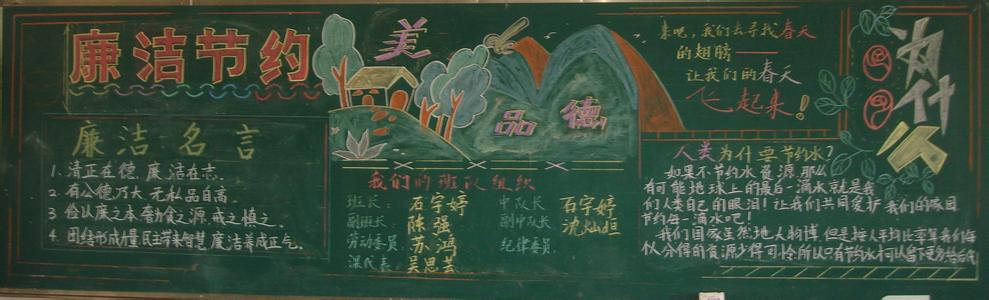 廉洁节约
廉洁名言
1. 清正在德 廉洁在志.
2. 有公德乃大 无私品自高.
3. 俭以廉之本 勤食之源 戒之慎之
4. 团结形成力量 民主带来智慧 廉洁养成正气.
美
品德
我们的班队组织
班长: 石宇婷 中队长 石宇婷
副班长: 陈强 副中队长 沈灿垣
劳动委员: 苏鸿 纪律委员:
课代表: 吴思芸
来吧,我们去寻找春天
的翅膀——
让我们的春天
飞起来!
为什么
人类为什么要节约水?
如果不节约水资源,那么
有可能地球上的最后一滴水就是我
们人类自己的眼泪!让我们共同爱护我们的家园
节约每一滴水吧!
我们国家虽然地大物博,但是按人平均比率算我们每
似分得的资源少得可怜所以只有节约水才可以留下更多给后代